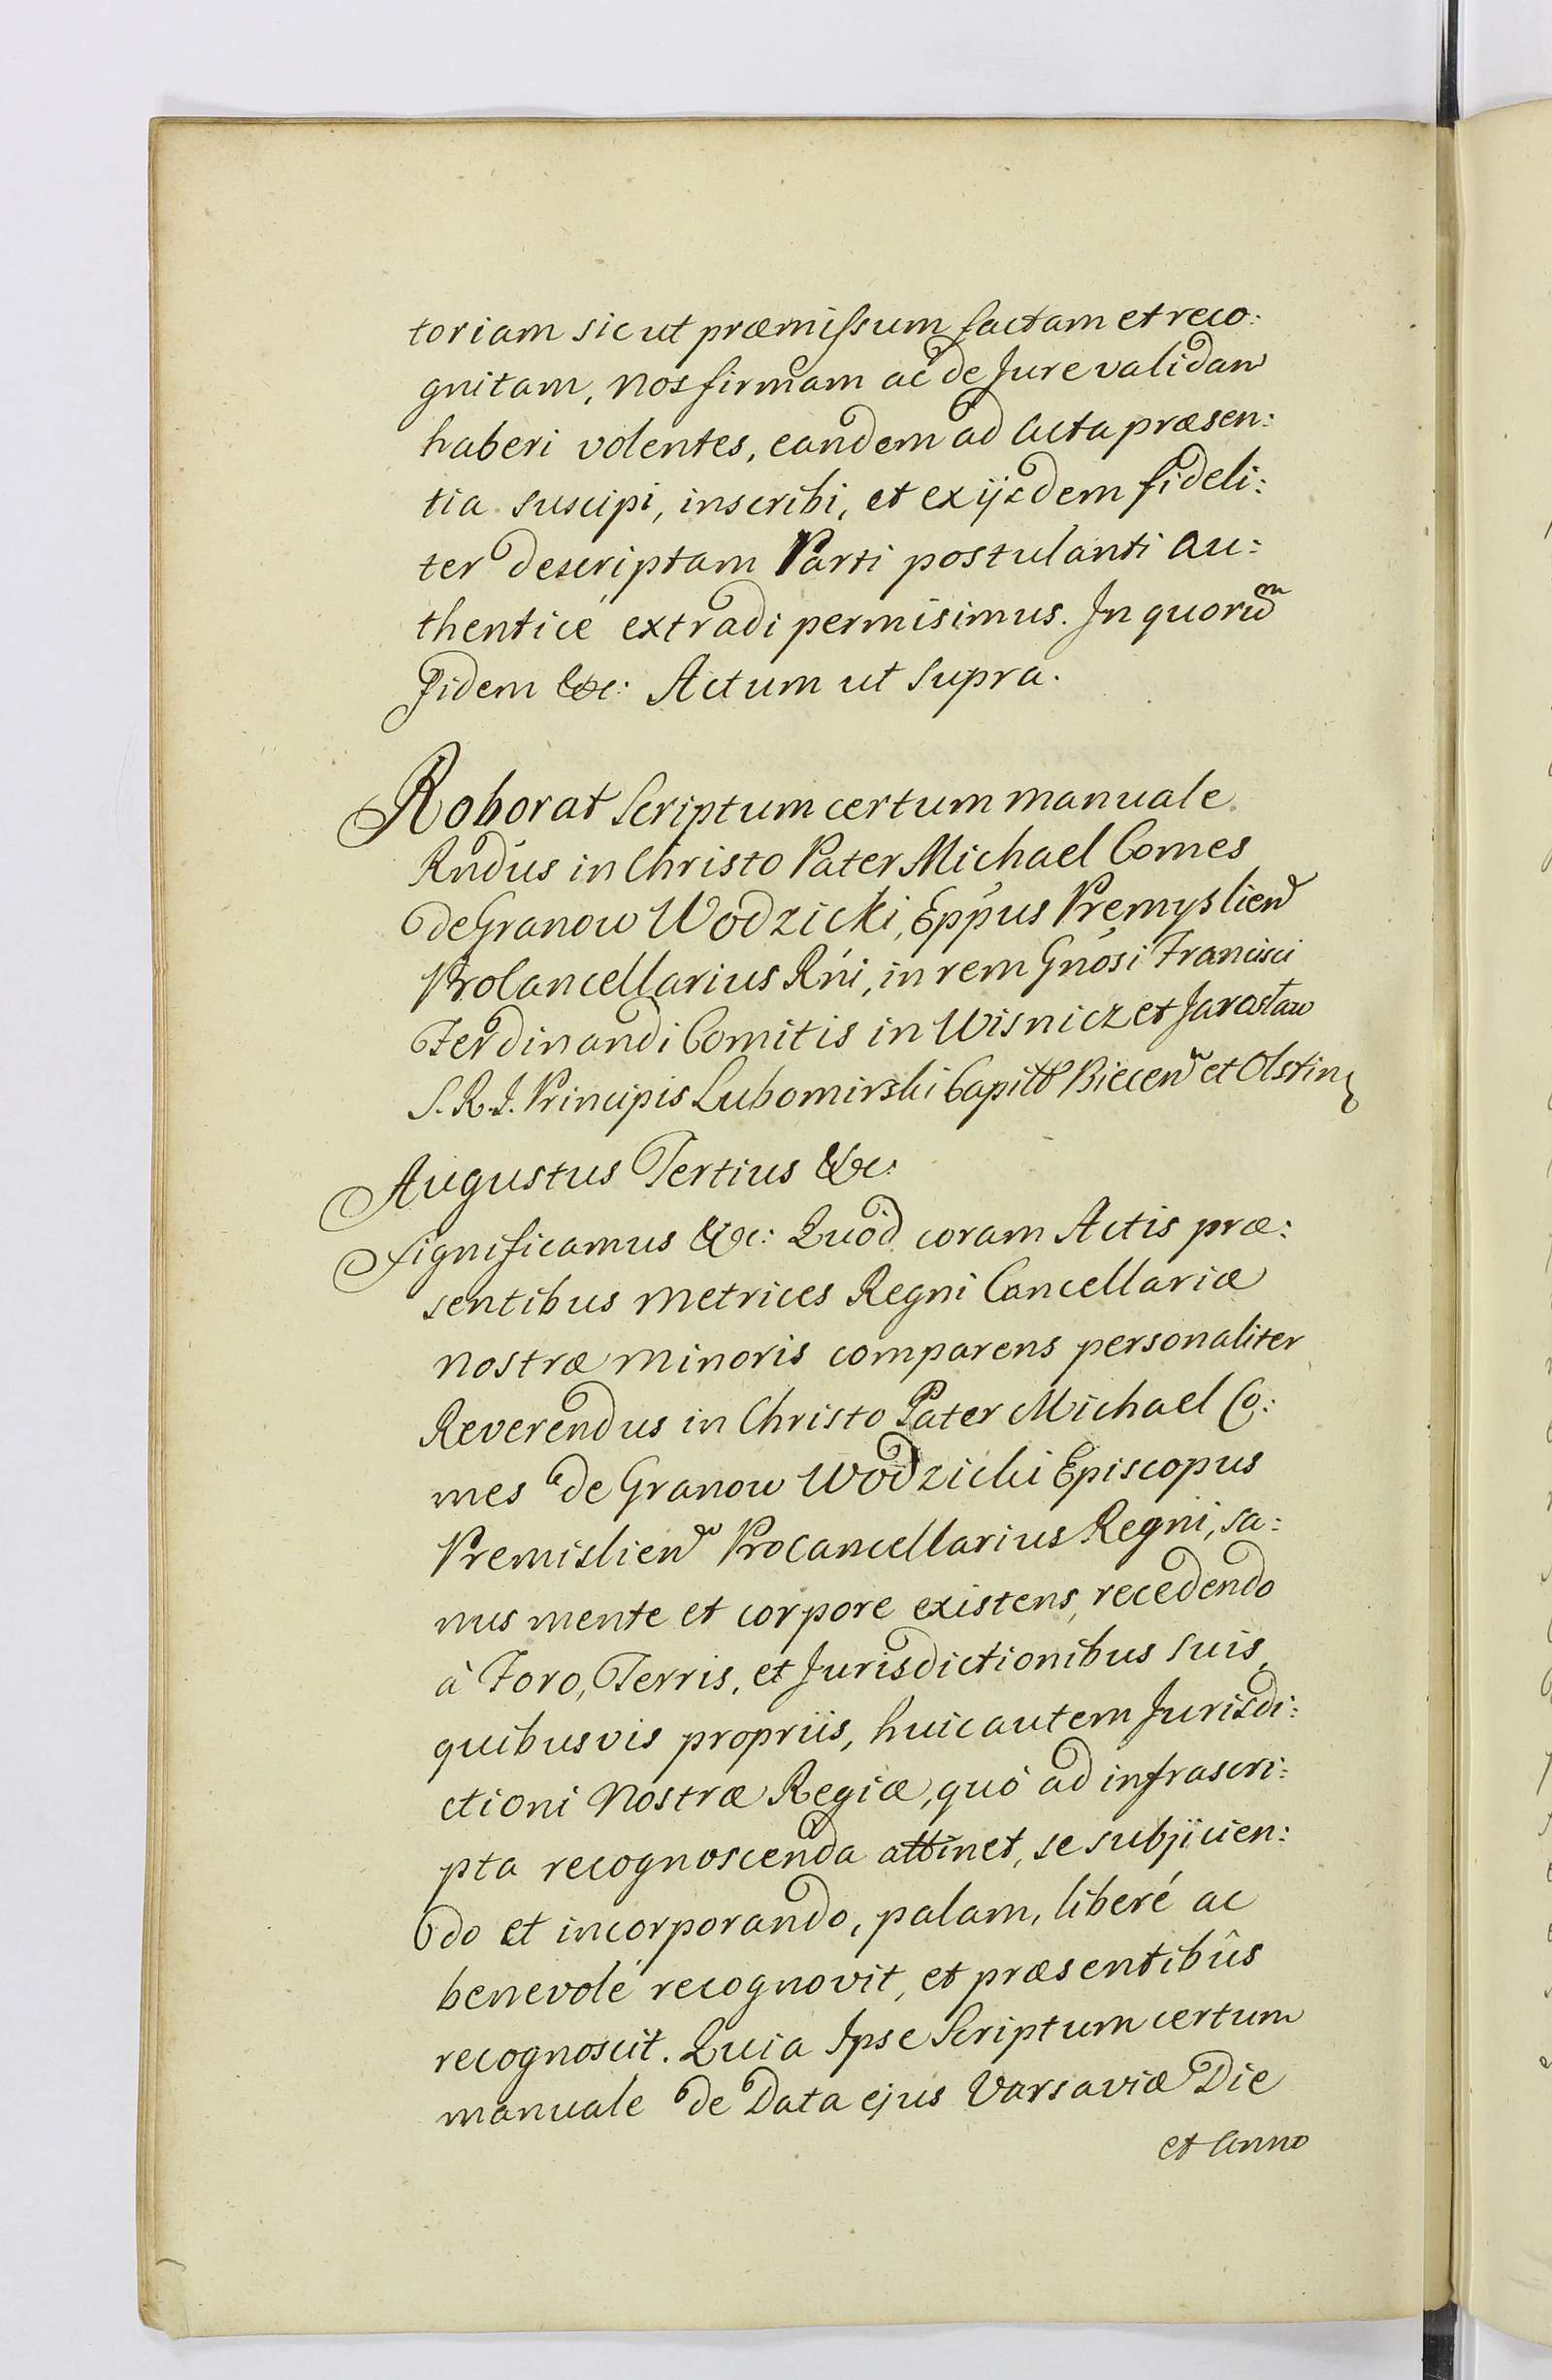 toriam sicut præmissum factam et reco:
gnitam, nos firmam ac de Jure validam
haberi volentes, eandem ad Acta præsen:
tia suscipi, inscribi, et ex ijsdem fideli:
ter descriptam Parti postulanti au:
thenticé extradi permisimus. In quorũm
Fidem &c: Actum ut supra.
Roborat Scriptum certum manuale
Rndus in Christo Pater Michael Comes
de Granow Wodzicki, Eppus Premyslien
ProCancellarius Rni, in rem Gnosi Francisci
Ferdinandi Comitis in Wisnicz et Jarosław
S. R. I. Principis Lubomirski Capit Biecen et Olstin
Augustus Tertius &c:
Significamus &c: Quód coram Actis præ:
sentibus Metrices Regni Cancellariæ
nostræ minoris comparens personaliter
Reverendus in Christo Pater Michael Co:
mes de Granow Wodzicki Episcopus
Premislien ProCancellarius Regni, sa:
nus mente et corpore existens, recedendo
à Foro, Terris, et Jurisdictionibus suis,
quibusvis propriis, huic autem Jurisdi:
ctioni Nostræ Regiæ, quó ad infrascri:
pta recognoscenda attinet, se subjicien:
do et incorporando, palam, liberé ac
benevolé recognovit, et præsentibûs
recognoscit. Quia Ipse Scriptum certum
manuale de Data ejus Varsaviæ Die
et Anno